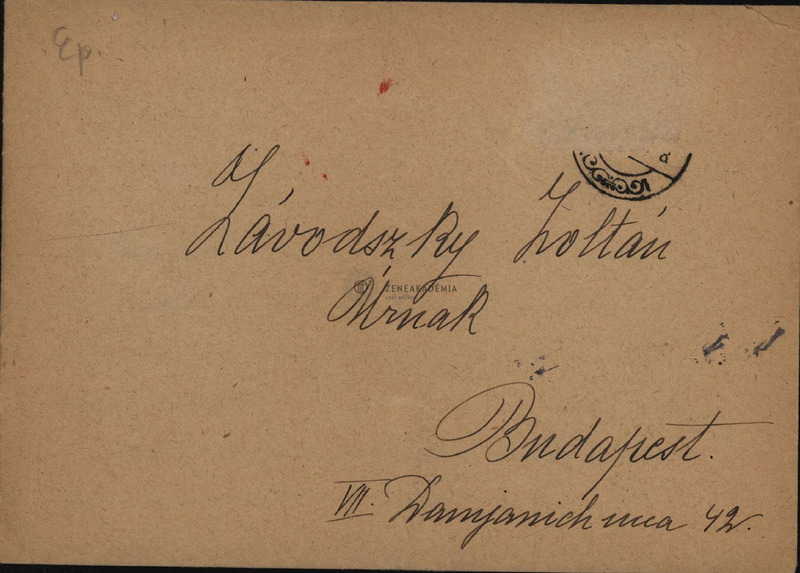 Ep.
Závodszky Zoltán
ZENEAKADÉMIA
Úrnak
Budapest.
VII. Damjanich ucca 42.